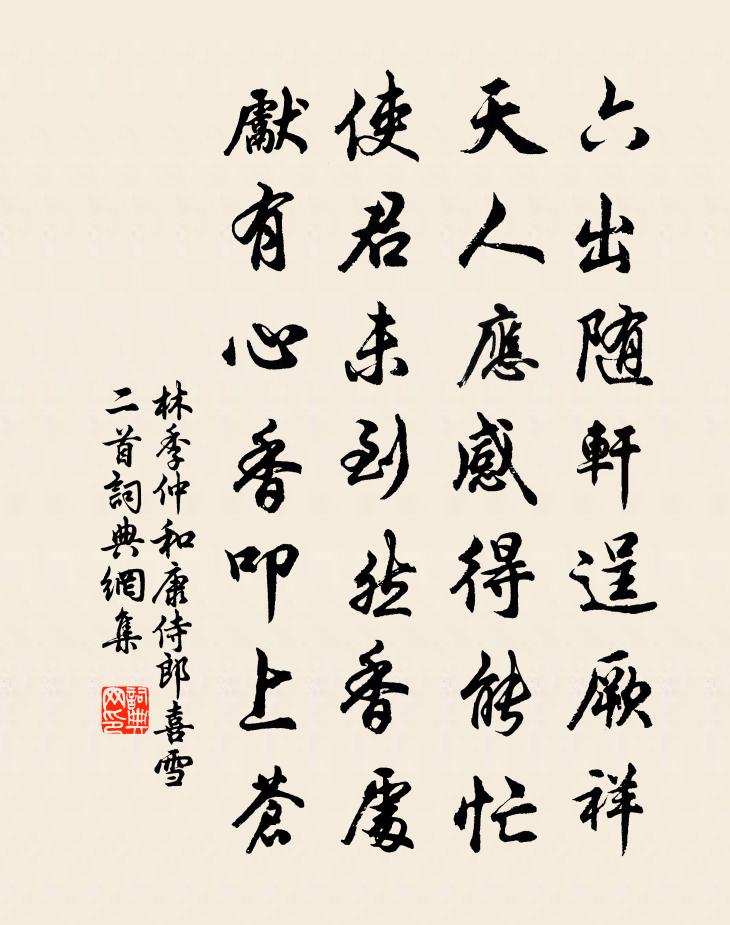 六出随軒逞厥祥
天人應感得能忙
使君未到然香處
獻有心香叩上蒼
林季仲和康侍郎喜雪
二首詞典網集
詞典
网印